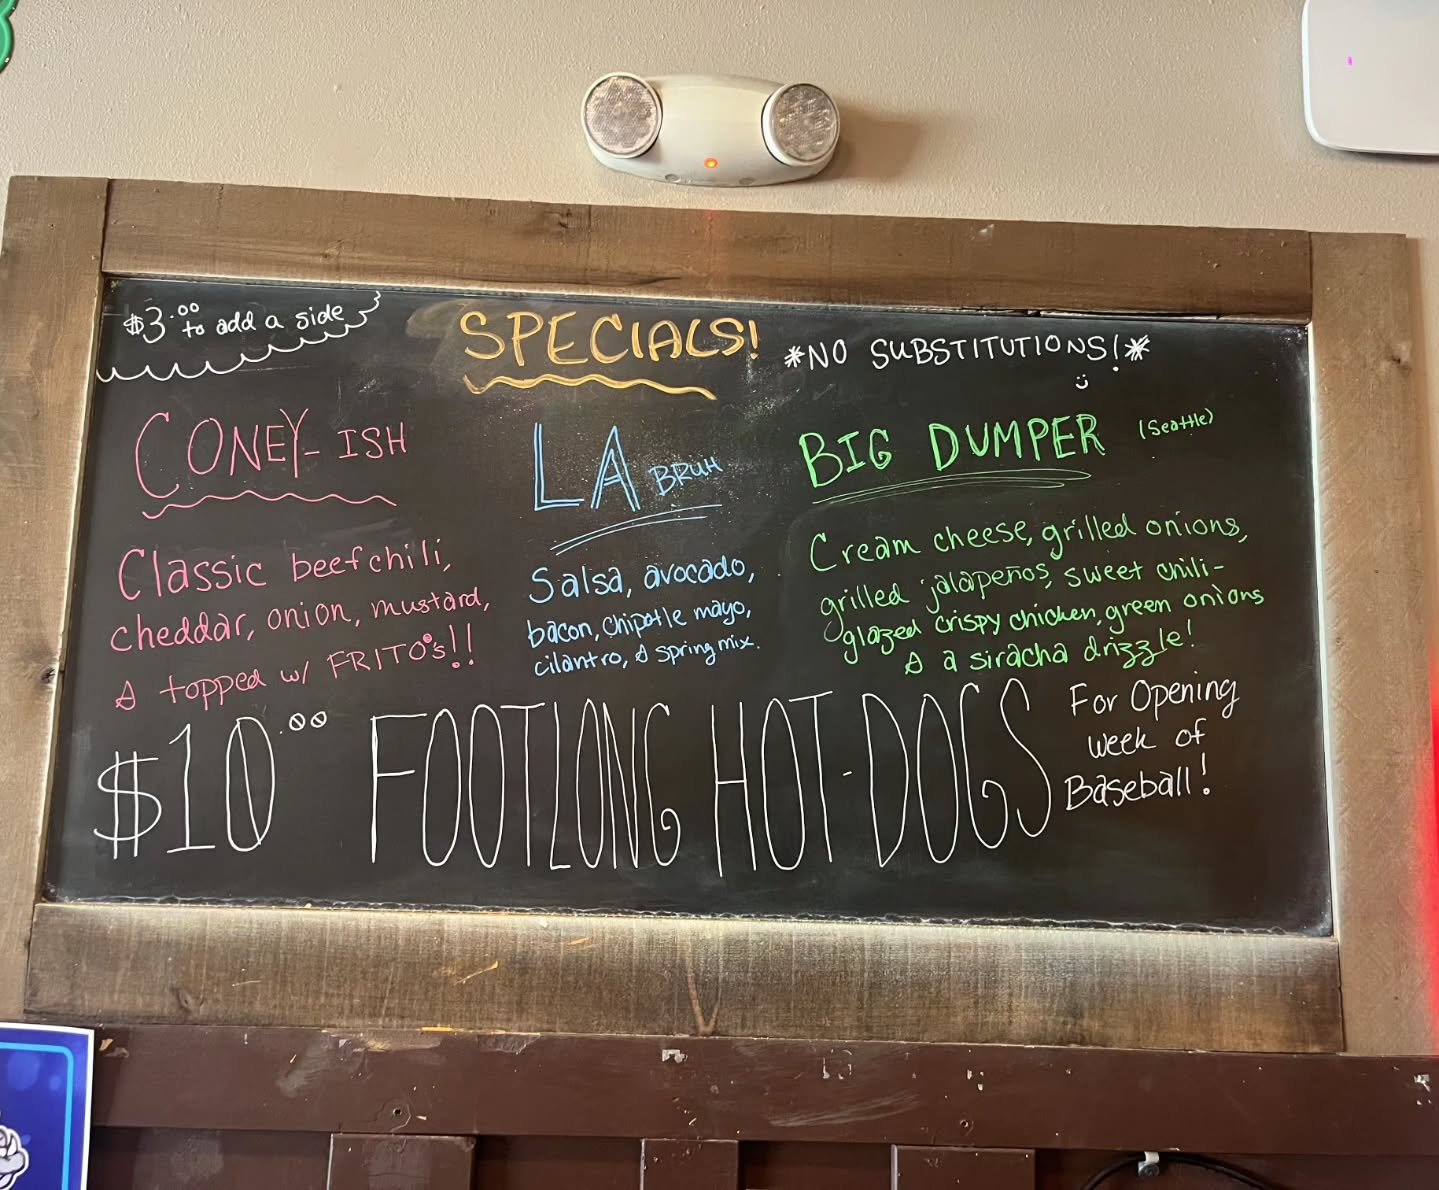 $3.00 to add a side
SPECIALS!
*NO SUBSTITUTIONS!*
CONEY-ISH
Classic beef chili,
cheddar, onion, mustard,
& topped w/ FRITO's!!
LA BRUH
Salsa, avocado,
bacon, chipotle mayo,
cilantro, & spring mix.
BIG DUMPER (Seattle)
Cream cheese, grilled onions,
grilled jalapeños, sweet chili-
glazed crispy chicken, green onions
& a siracha drizzle!
$10.00 FOOTLONG HOT-DOGS
For Opening
week of
Baseball!